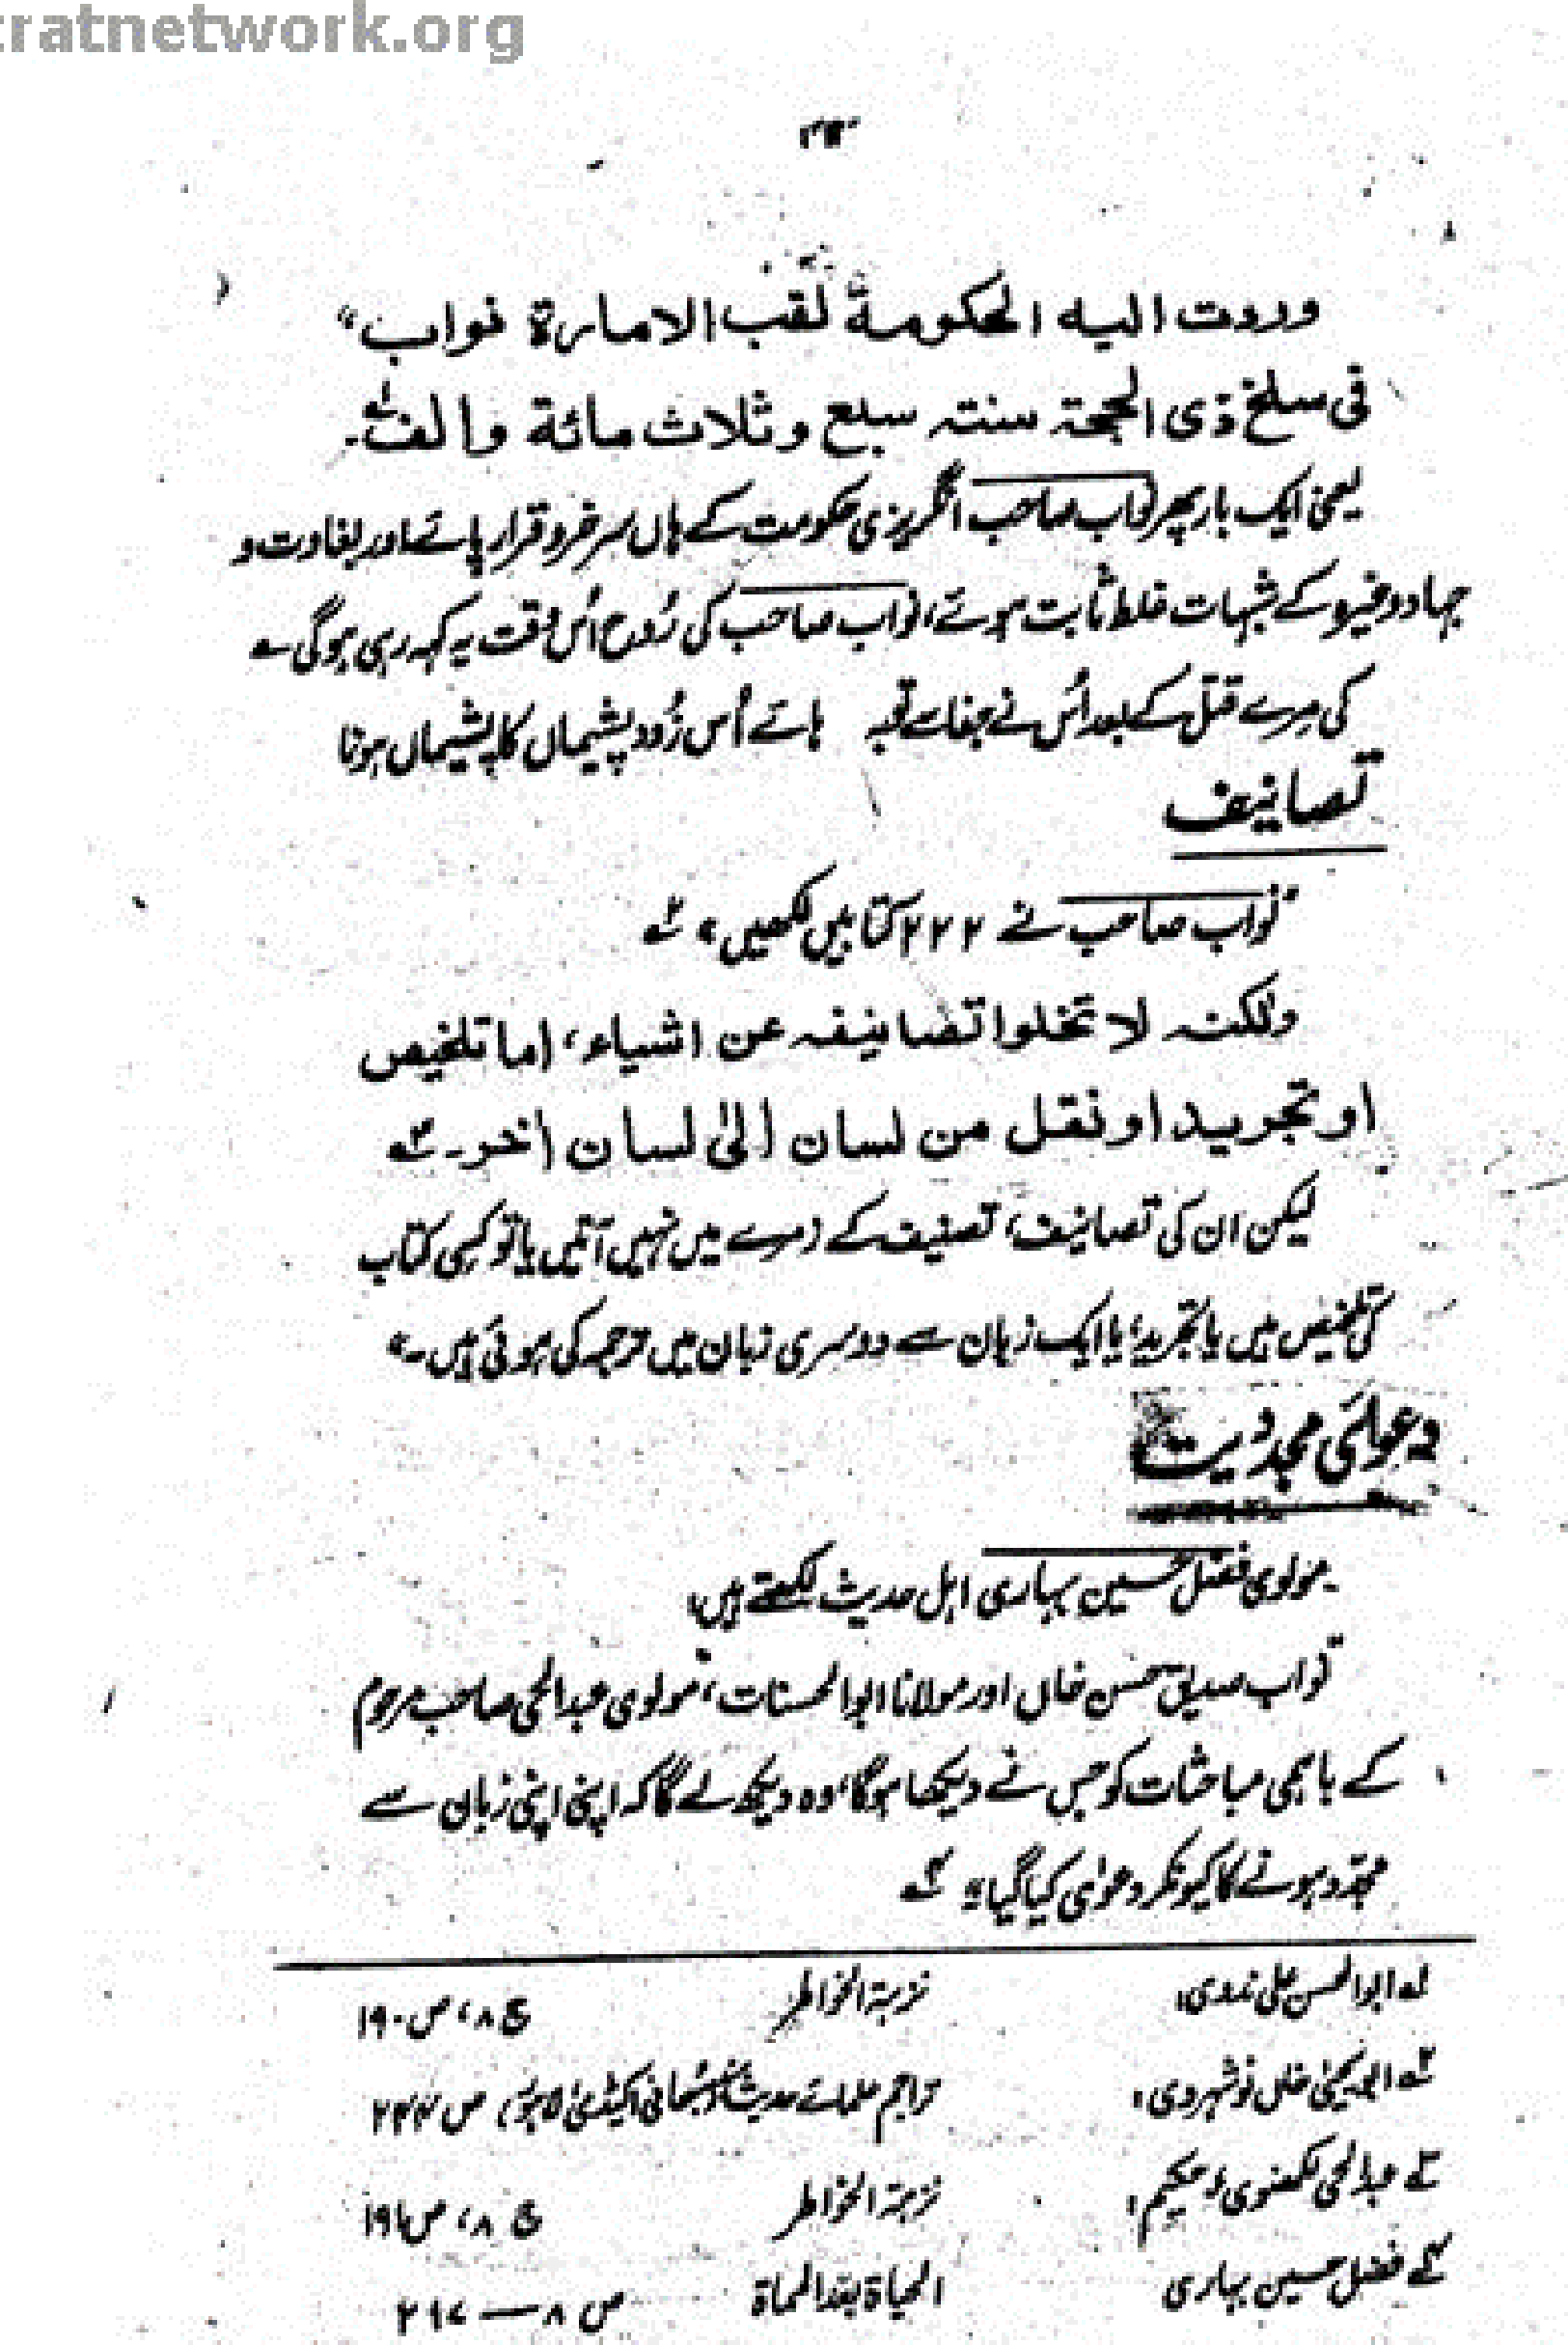 ratnetwork.org
وردت اليه الحكومة لقب الامارة نواب"
فى سلخ ذى الحجة سنته سبع وثلاث مائة والف۔ لہ
یعنی ایک بار پھر نواب صاحب انگریزی حکومت کے ہاں سرخرو قرار پائے اور بغاوت و
جہاد وغیرہ کے شبہات غلط ثابت ہوئے، نواب صاحب کی رُوح اُس وقت یہ کہہ رہی ہوگی ے
کی مرے قتل کے بعد اُس نے جفا سے توبہ ہائے اُس زُود پشیماں کا پشیماں ہونا
تصانیف
"نواب صاحب نے ۲۲۲ کتابیں لکھیں" ۲ہ
ولكنه لا تخلوا تصانيفه عن اشياء، اما تلخيص
او تجريد او نقل من لسان الىٰ لسان اٰخر۔ ۳ہ
لیکن ان کی تصانیف، تصنیف کے زمرے میں نہیں آتیں یا تو کسی کتاب
کی تلخیص ہیں یا تجرید، یا ایک زبان سے دوسری زبان میں ترجمہ کی ہوئی ہیں۔"
دعوائے مجددیت
مولوی فضل حسین بہاری اہل حدیث لکھتے ہیں،
"نواب صدیق حسن خاں اور مولانا ابوالحسنات، مولوی عبدالحی صاحب مرحوم
کے باہمی مباحثات کو جس نے دیکھا ہوگا، وہ دیکھ لے گا کہ اپنی اپنی زبان سے
مجدّد ہونے کا کیونکر دعوٰی کیا گیا" ۴ہ
لہ ابوالحسن علی ندوی، نزہۃ الخواطر ج ۸، ص ۱۹۰
۲ہ ابویحیٰی خاں نوشہروی، تراجم علمائے حدیث ہند (سبحانی اکیڈمی لاہور) ص
۳ہ عبدالحی لکھنوی، حکیم، نزہۃ الخواطر ج ۸، ص ۱۹۱
۴ہ فضل حسین بہاری الحیاۃ بعد المماۃ ص ۸ — ۲۱۷